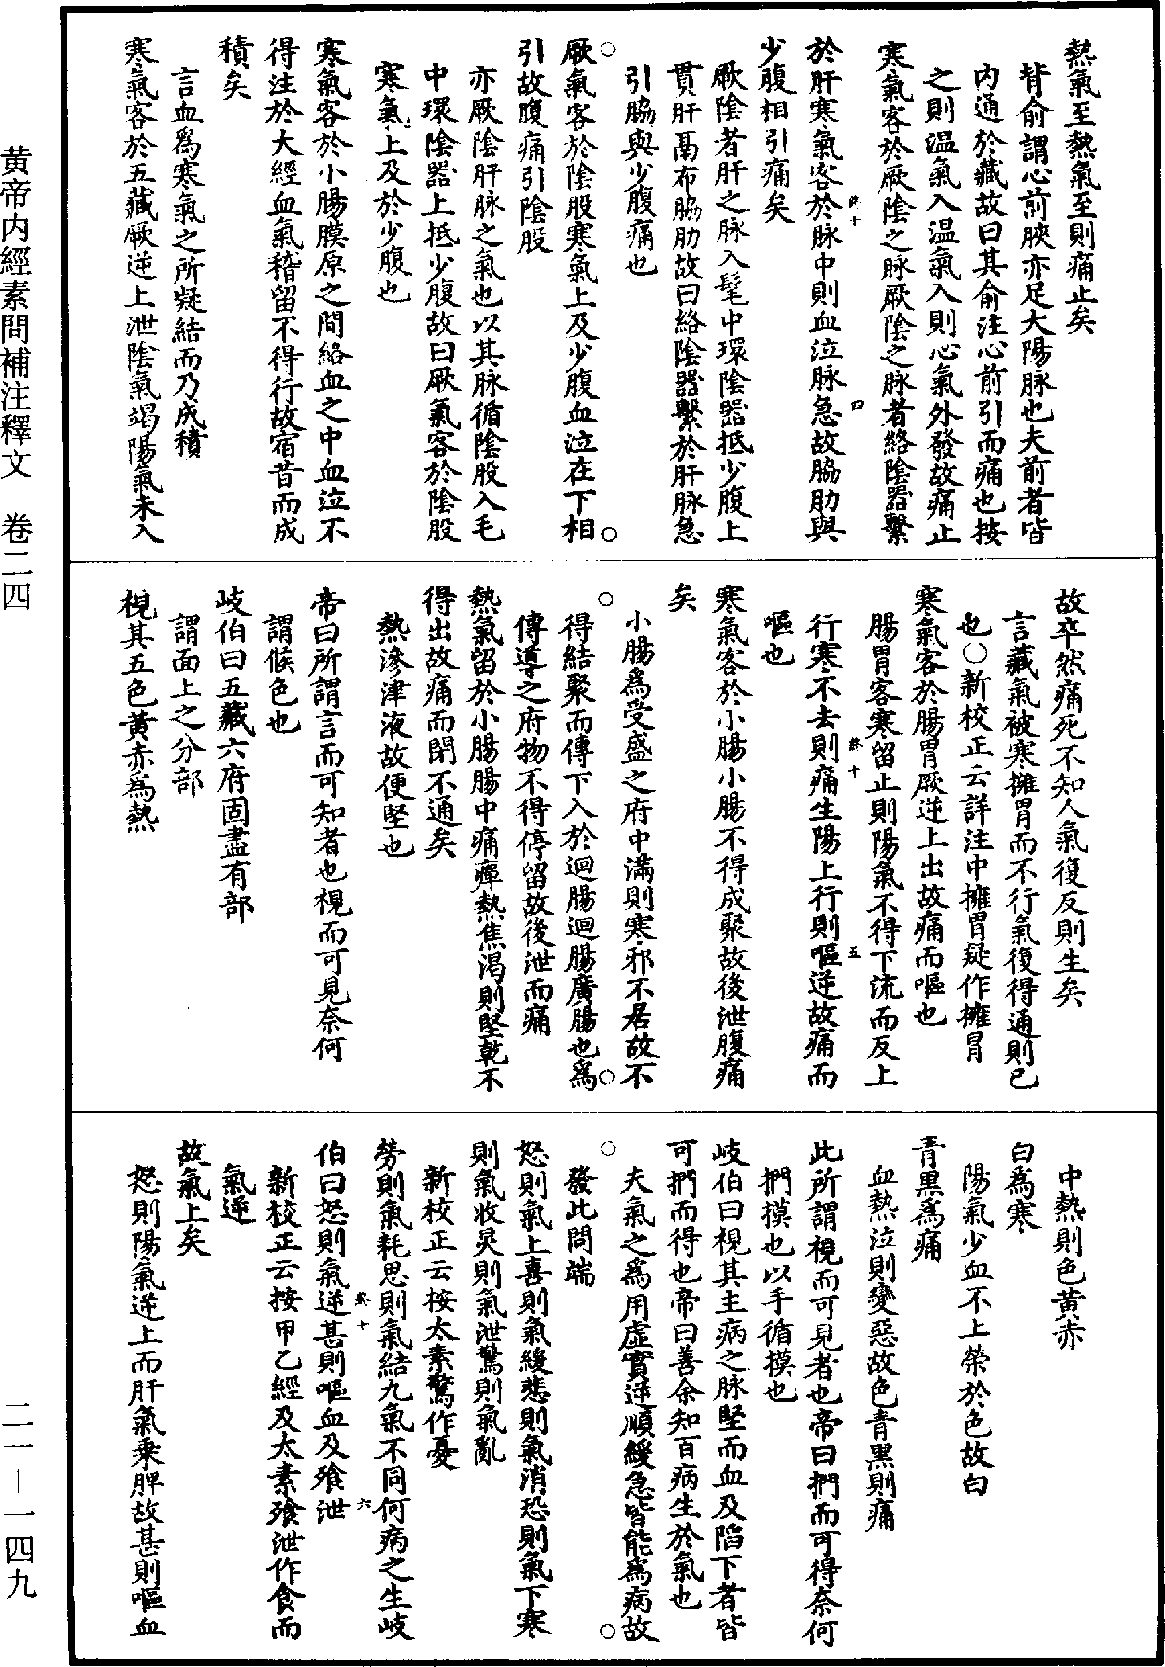 熱氣至熱氣至則痛止矣
背俞謂心前腧亦足大陽脉也夫前者皆
內通於藏故曰其俞注心前引而痛也按
之則温氣入温氣入則心氣外發故痛止
寒氣客於厥陰之脉厥陰之脉者絡陰器繫
於肝寒氣客於脉中則血泣脉急故脇肋與
少腹相引痛矣
厥陰者肝之脉入髦中環陰器抵少腹上
貫肝鬲布脇肋故曰絡陰器繫於肝脉急
引脇與少腹痛也
厥氣客於陰股寒氣上及少腹血泣在下相
引故腹痛引陰股
亦厥陰肝脉之氣也以其脉循陰股入毛
中環陰器上抵少腹故曰厥氣客於陰股
寒氣上及於少腹也
寒氣客於小腸膜原之間絡血之中血泣不
得注於大經血氣稽留不得行故宿昔而成
積矣
言血為寒氣之所凝結而乃成積
寒氣客於五藏厥逆上泄陰氣竭陽氣未入
故卒然痛死不知人氣復反則生矣
言藏氣被寒擁冐而不行氣復得通則已
也○新校正云詳注中擁冐疑作擁冐
寒氣客於腸胃厥逆上出故痛而嘔也
腸胃客寒留止則陽氣不得下流而反上
行寒不去則痛生陽上行則嘔逆故痛而
嘔也
寒氣客於小腸小腸不得成聚故後泄腹痛
矣
小腸為受盛之府中滿則寒邪不居故不
得結聚而傳下入於迴腸迴腸廣腸也為
傳導之府物不得停留故後泄而痛
熱氣留於小腸腸中痛癉熱焦渴則堅乾不
得出故痛而閉不通矣
熱滲津液故便堅也
帝曰所謂言而可知者也視而可見奈何
謂候色也
岐伯曰五藏六府固盡有部
謂面上之分部
視其五色黃赤為熱
中熱則色黃赤
白為寒
陽氣少血不上榮於色故白
青黑為痛
血熱泣則變惡故色青黑則痛
此所謂視而可見者也帝曰捫而可得奈何
捫摸也以手循摸也
岐伯曰視其主病之脉堅而血及陷下者皆
可捫而得也帝曰善余知百病生於氣也
夫氣之為用虛實逆順緩急皆能為病故
發此問端
怒則氣上喜則氣緩悲則氣消恐則氣下寒
則氣收炅則氣泄驚則氣亂
新校正云按太素驚作憂
勞則氣耗思則氣結九氣不同何病之生岐
伯曰怒則氣逆甚則嘔血及飱泄
新校正云按甲乙經及太素飱泄作食而
氣逆
故氣上矣
怒則陽氣逆上而肝氣乘脾故甚則嘔血
黄帝内經素問補注釋文 卷二四
二一—一四九